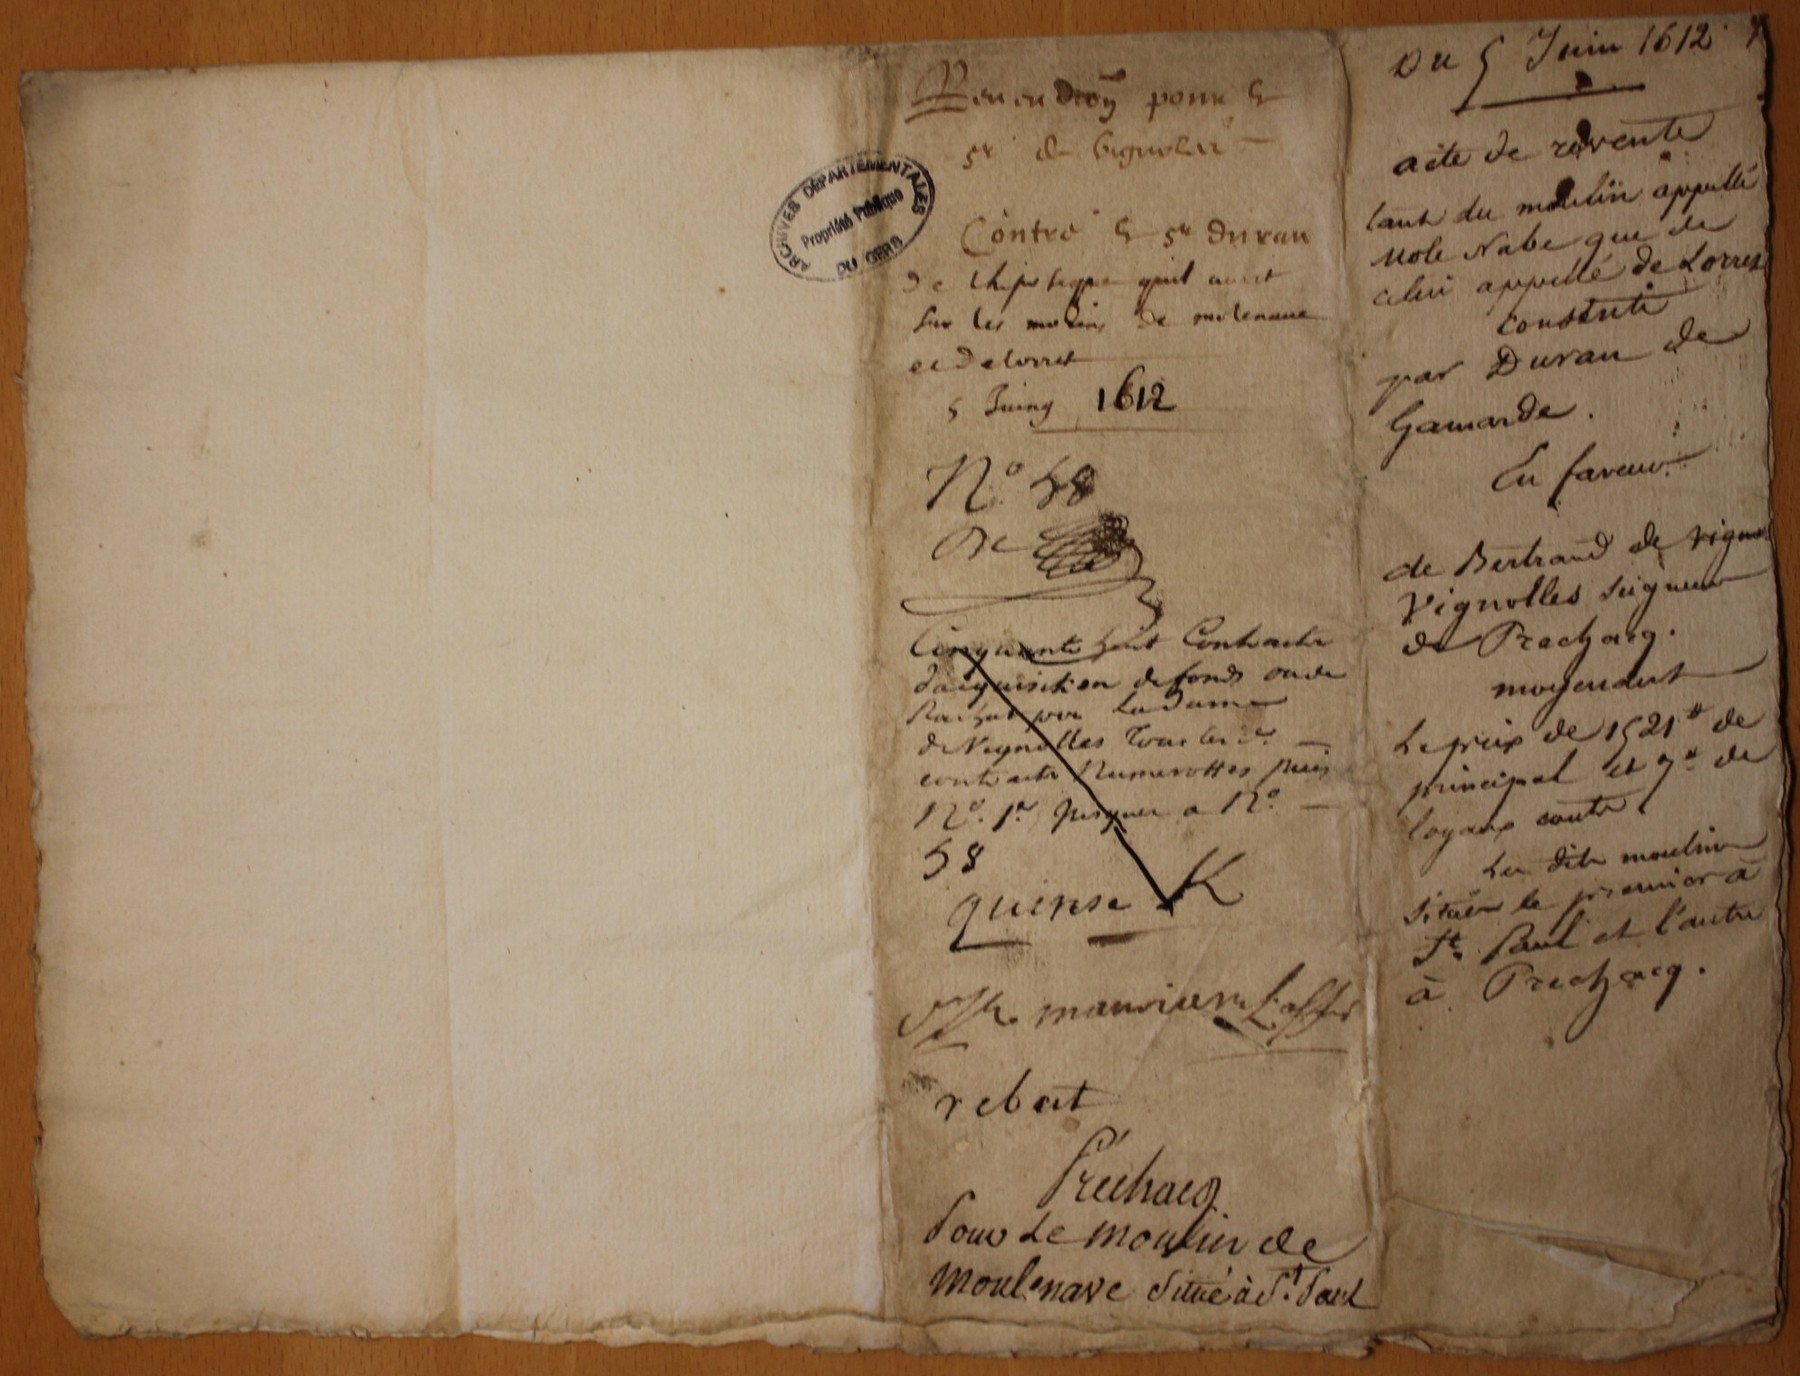 ARCHIVES DÉPARTEMENTALES
Propriété Publique
DU GERS
Revendion pour le
sr de Vignoles
Contre le sr duran
de lhipoteque quil avoit
sur les molins de molenave
et de lorret
5 Juing 1612
N.º 58
De
Cinquante huit Contracts
dacquisition de fonds ou de
Rachat par La Dame
de Vignolles Tous les ds
contracts Numerottes puis
Nº. 1er jusques a Nº.
58
quinse K
rebut
Préchacq
Pour Le moulin de
Moulenave situé à St. Paul
Du 5 Juin 1612
acte de revente
tant du moulin appellé
Mole Nabe que de
celui appellé de Lorret
consenti
par Duran de
Gamarde.
En faveur
de Bertrand de Vigno
Vignolles seigneur
de Prechacq.
moyenant
Le prix de 1521# de
principal et 7# de
loyaux couts.
Les dits moulins
Situés le premier à
St. Paul et l'autre
à Prechacq.